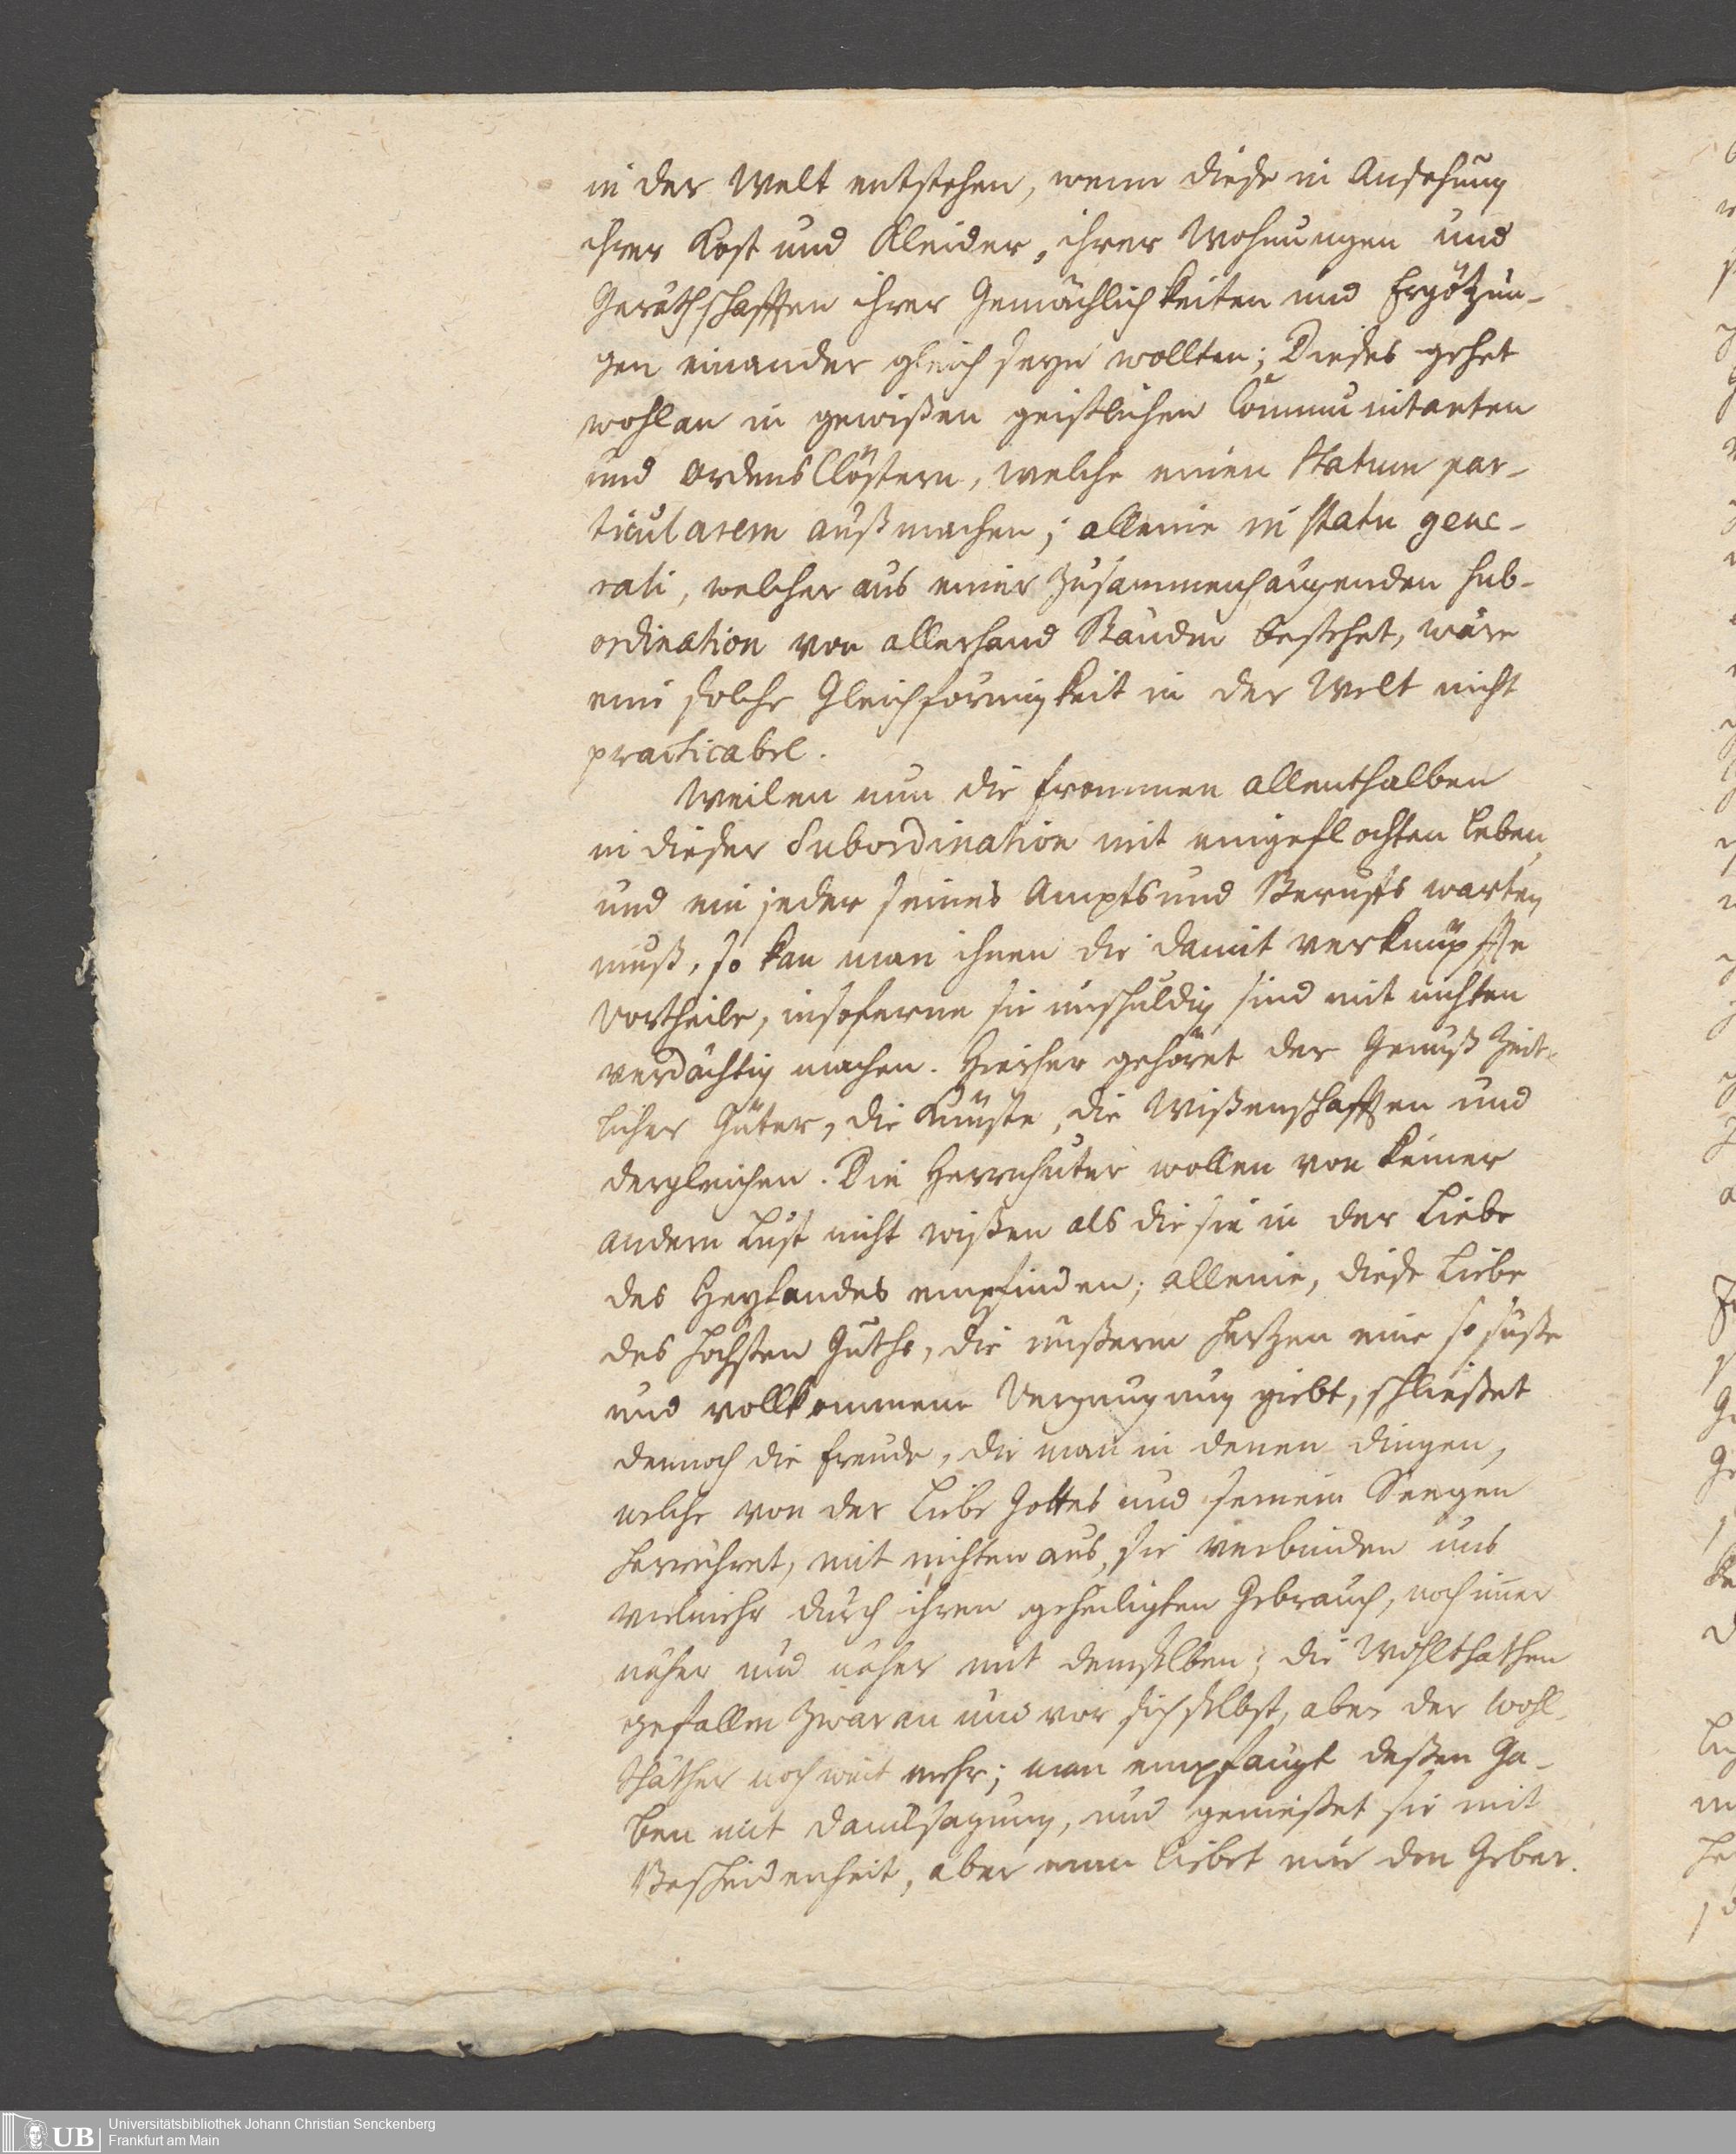 in der Welt entstehen, wenn diese in Ansehung
ihrer Kost und Kleider, ihrer Wohnungen und
Geräthschafften ihrer Gemächlichkeiten und Ergötzun-
gen einander gleich seyn wollten; Dieses gehet
wohl an in gewißen geistlichen Communitaeten
und Ordens Clöstern, welche einen Statum par-
ticularem außmachen; alleine in statu gene-
rali, welcher aus einer zusammenhangenden sub-
ordination von allerhand Ständen bestehet, wäre
eine solche Gleichförmigkeit in der Welt nicht
practicabel.
Weilen nun die frommen allenthalben
in dieser Subordination mit eingeflochten leben,
und ein jeder seines Ampts und Beruffs warten
muß, so kan man ihnen die damit verknüpffte
Vortheile, insoferne sie unschuldig sind mit nichten
verdächtig machen. Hierher gehöret der Genuß zeit-
licher Güter, die Künste, die Wißenschafften und
dergleichen. Die Herrnhuter wollen von keiner
andern Lust nicht wißen als die sie in der Liebe
des Heylandes empfinden; alleine, diese Liebe
des höchsten Guths, die unßerm Hertzen eine so süße
und vollkommene Vergnugung giebt, schließet
dennoch die freude, die man in denen dingen,
welche von der Liebe Gottes und seinem Seegen
herrühret, mit nichten aus, sie verbinden uns
vielmehr durch ihren geheiligten Gebrauch, noch imer
näher und näher mit demselben; die Wohlthathen
gefallen zwar an und vor sich selbst, aber der Wohl-
thäther noch weit mehr; man empfangt deßen Ga-
ben mit Dancksagung, und genießet sie mit
Bescheidenheit, aber man liebet nur den Geber.
UB
Universitätsbibliothek Johann Christian Senckenberg
Frankfurt am Main